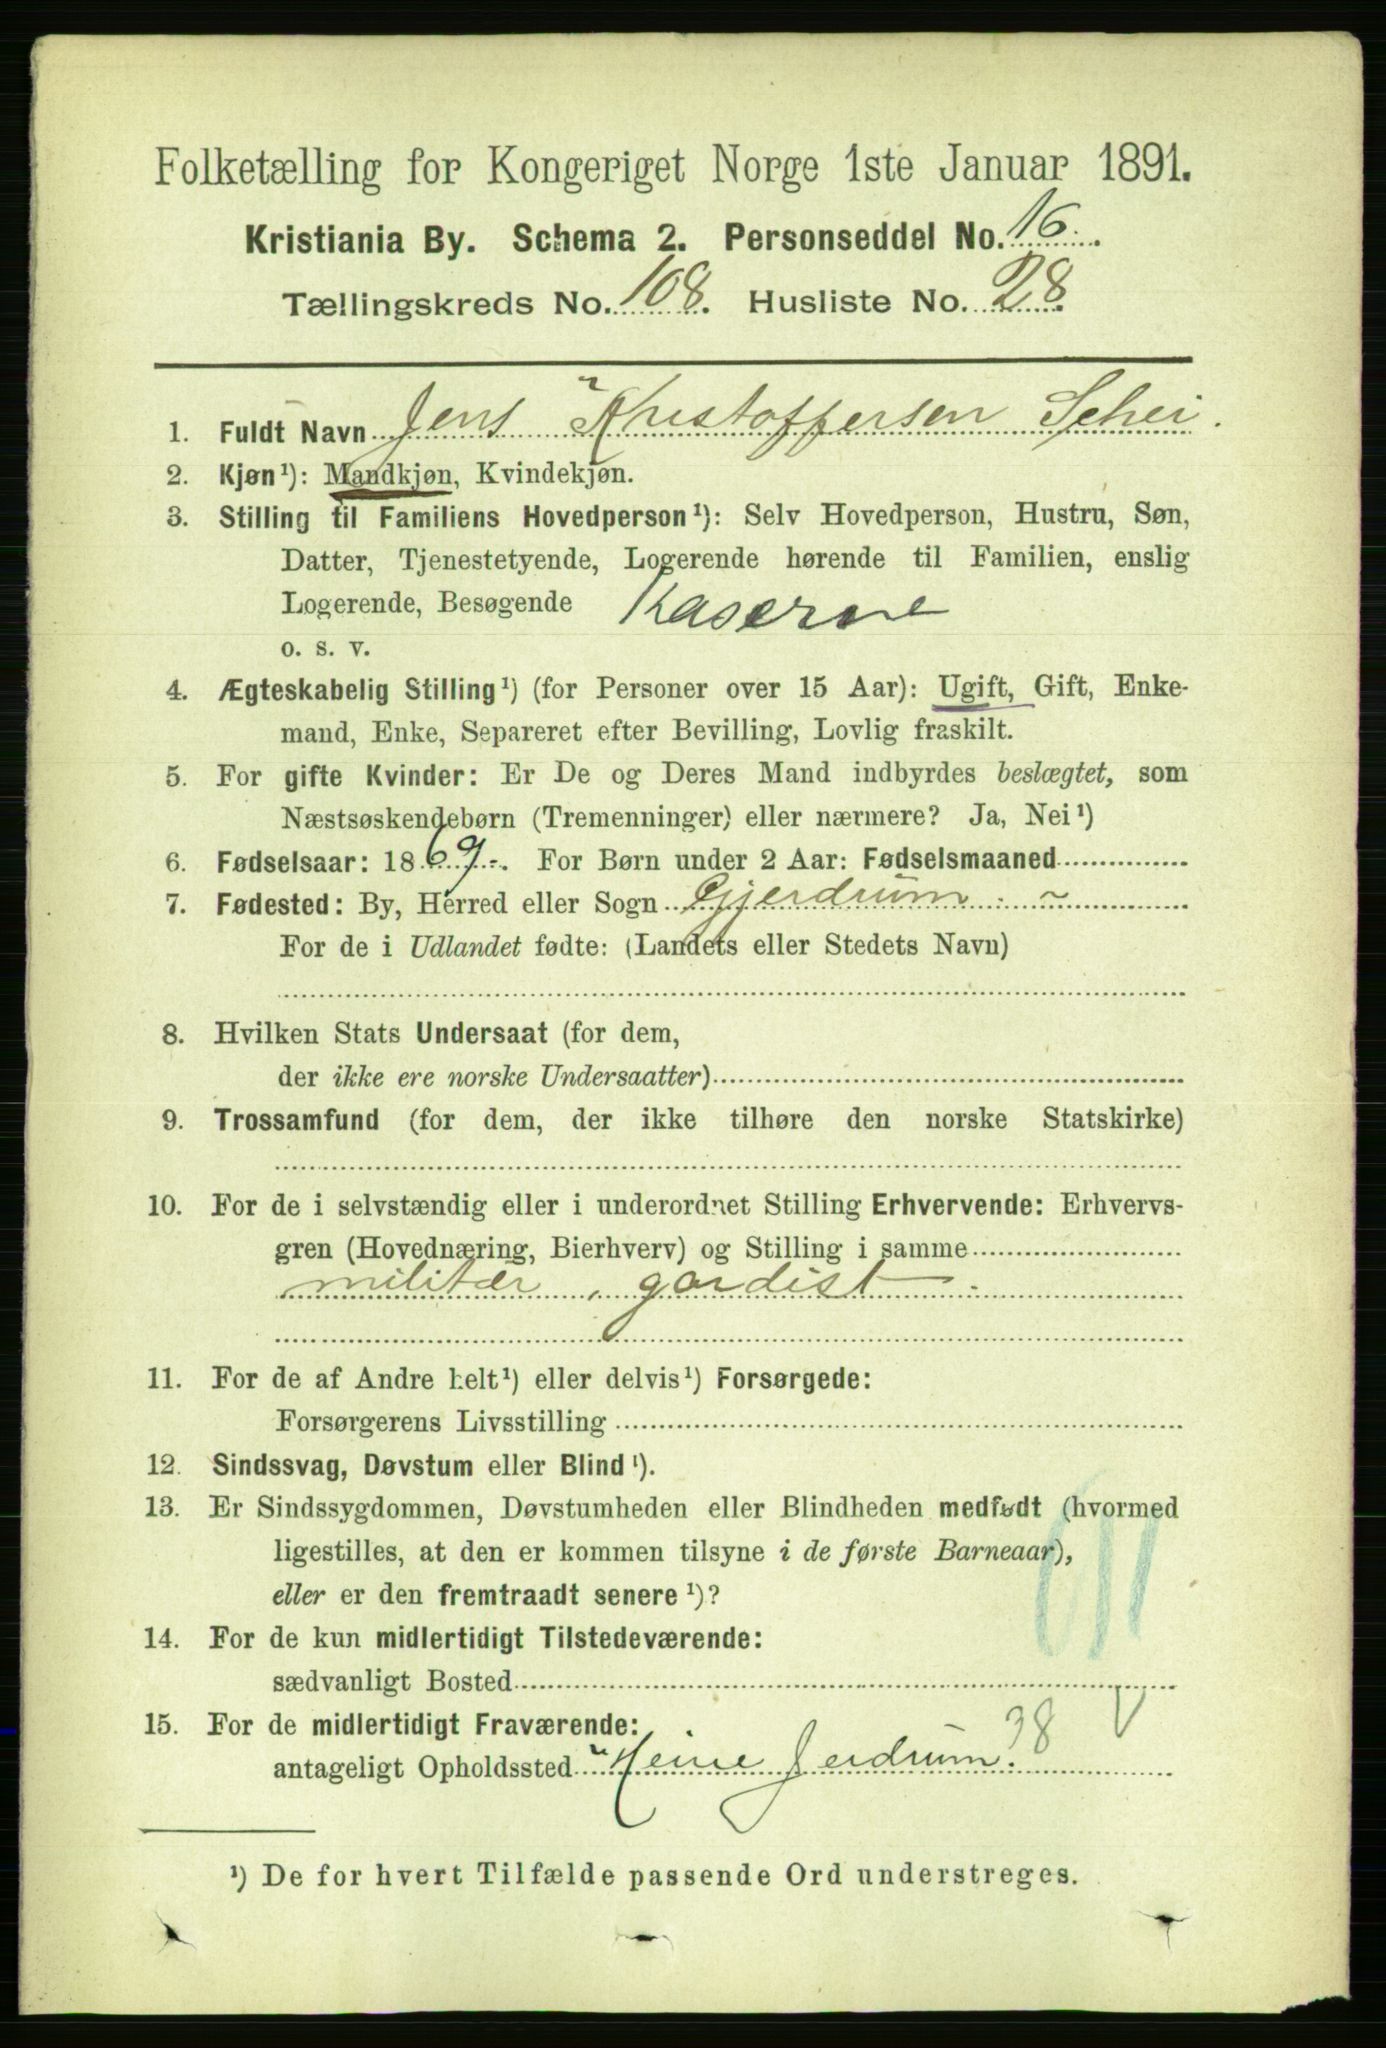 Folketælling for Kongeriget Norge 1ste Januar 1891.
Kristiania By. Schema 2. Personseddel No. 16.
Tællingskreds No. 108. Husliste No. 28.
1. Fuldt Navn Jens Kristoffersen Schei.
2. Kjøn¹): Mandkjøn, Kvindekjøn.
3. Stilling til Familiens Hovedperson¹): Selv Hovedperson, Hustru, Søn,
Datter, Tjenestetyende, Logerende hørende til Familien, enslig
Logerende, Besøgende Kaserne
o. s. v.
4. Ægteskabelig Stilling¹) (for Personer over 15 Aar): Ugift, Gift, Enke-
mand, Enke, Separeret efter Bevilling, Lovlig fraskilt.
5. For gifte Kvinder: Er De og Deres Mand indbyrdes beslægtet, som
Næstsøskendebørn (Tremenninger) eller nærmere? Ja, Nei¹)
6. Fødselsaar: 1869. For Børn under 2 Aar: Fødselsmaaned
7. Fødested: By, Herred eller Sogn Gjerdrum
For de i Udlandet fødte: (Landets eller Stedets Navn)
8. Hvilken Stats Undersaat (for dem,
der ikke ere norske Undersaatter)
9. Trossamfund (for dem, der ikke tilhøre den norske Statskirke)
10. For de i selvstændig eller i underordnet Stilling Erhvervende: Erhvervs-
gren (Hovednæring, Bierhverv) og Stilling i samme
militær, gardist.
11. For de af Andre helt¹) eller delvis¹) Forsørgede:
Forsørgerens Livsstilling
12. Sindssvag, Døvstum eller Blind¹).
13. Er Sindssygdommen, Døvstumheden eller Blindheden medfødt (hvormed
ligestilles, at den er kommen tilsyne i de første Barneaar),
eller er den fremtraadt senere¹)?
14. For de kun midlertidigt Tilstedeværende:
sædvanligt Bosted
15. For de midlertidigt Fraværende: 38 V
antageligt Opholdssted Jerdrum.
¹) De for hvert Tilfælde passende Ord understreges.